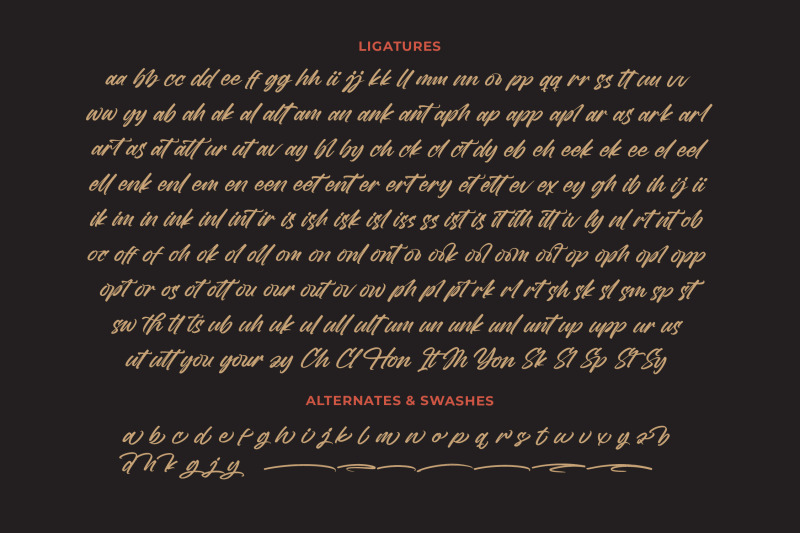 LIGATURES
aa bb cc dd ee ff gg hh ii jj kk ll mm nn oo pp qq rr ss tt uu vv
ww yy ab ah ak al alt am an ank ant aph ap app apl ar as ark arl
art as at att ur ut av ay bl by ch ck cl ct dy eb eh eek ek ee el eel
ell enk enl em en een eet ent er ert ery et ett ev ex ey gh ib ih ij ii
ik im in ink inl int ir is ish isk isl iss ss ist is it ith itt iv ly nl rt nt ob
oc off of oh ok ol oll om on onl ont oo ook ool oom oot op oph opl opp
opt or os ot ott ou our out ov ow ph pl pt rk rl rt sh sk sl sm sp st
sw th tl ts ub uh uk ul ull ult um un unk unl unt up upp ur us
ut utt you your zy Ch Cl Hon It M Yon Sk Sl Sp St Sy
ALTERNATES & SWASHES
a b c d e f g h i j k l m n o p q r s t w u v x y z b
d h k g j y